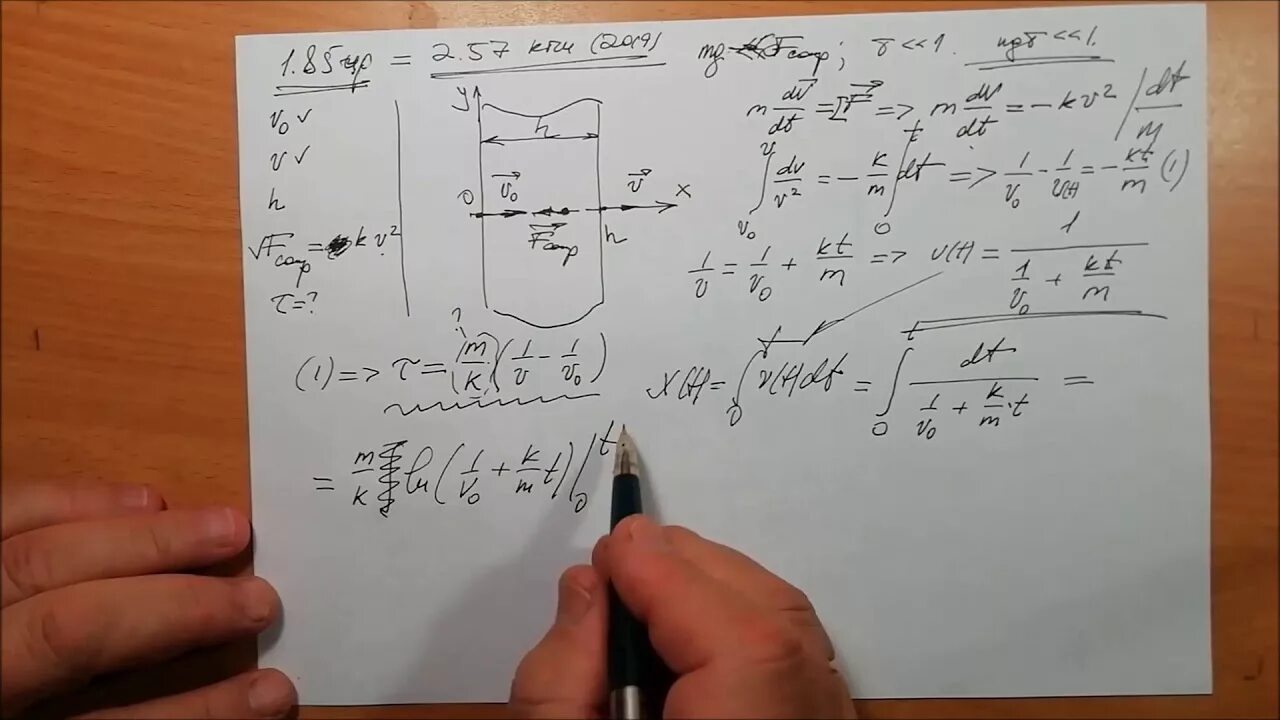 1.85 = 2.57 (2019)
mg << Fсопр; τ << 1. mgτ << 1.
v₀ ✓
v ✓
h
Fсопр = kv²
τ = ?
y
h
0
v₀
v
x
Fсопр
h
m dv/dt = ΣF => m dv/dt = -kv² / dt/m
∫ᵥ₀ᵛ dv/v² = -k/m ∫₀ᵗ dt => 1/v₀ - 1/v(t) = -kt/m (1)
1/v = 1/v₀ + kt/m => v(t) = 1/(1/v₀ + kt/m)
?
(1) => τ = (m/k)(1/v - 1/v₀)
x(t) = ∫₀ᵗ v(t)dt = ∫₀ᵗ dt/(1/v₀ + k/m·t) =
= m/k ln(1/v₀ + k/m t)|₀ᵗ